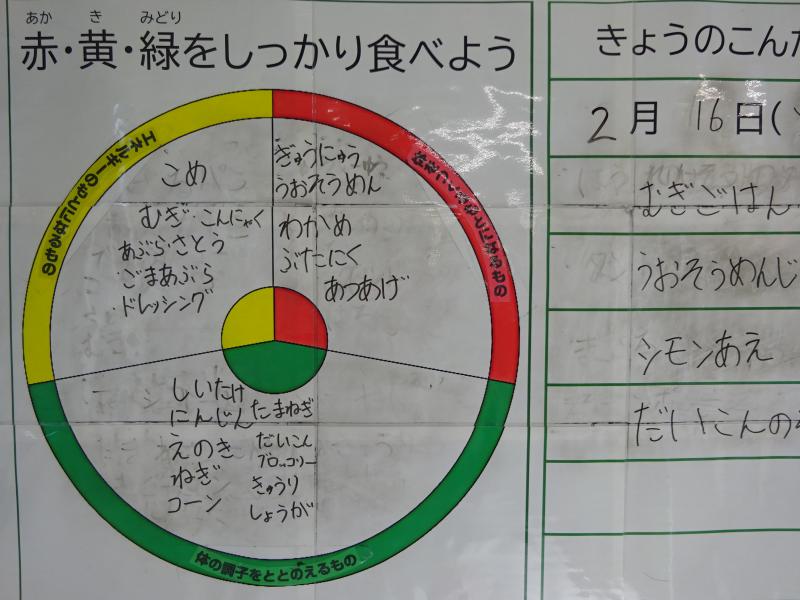 あか き みどり
赤・黄・緑をしっかり食べよう
エネルギーのもとになるもの
こめ
むぎ・こんにゃく
あぶら・さとう
ごまあぶら
ドレッシング
体をつくるもとになるもの
ぎゅうにゅう
うおそうめん
わかめ
ぶたにく
あつあげ
しいたけ
にんじん
えのき
ねぎ
コーン
たまねぎ
だいこん
ブロッコリー
きゅうり
しょうが
体の調子をととのえるもの
きょうのこんだ
2月 16日(
むぎごはん
うおそうめんじ
シモンあえ
だいこんの